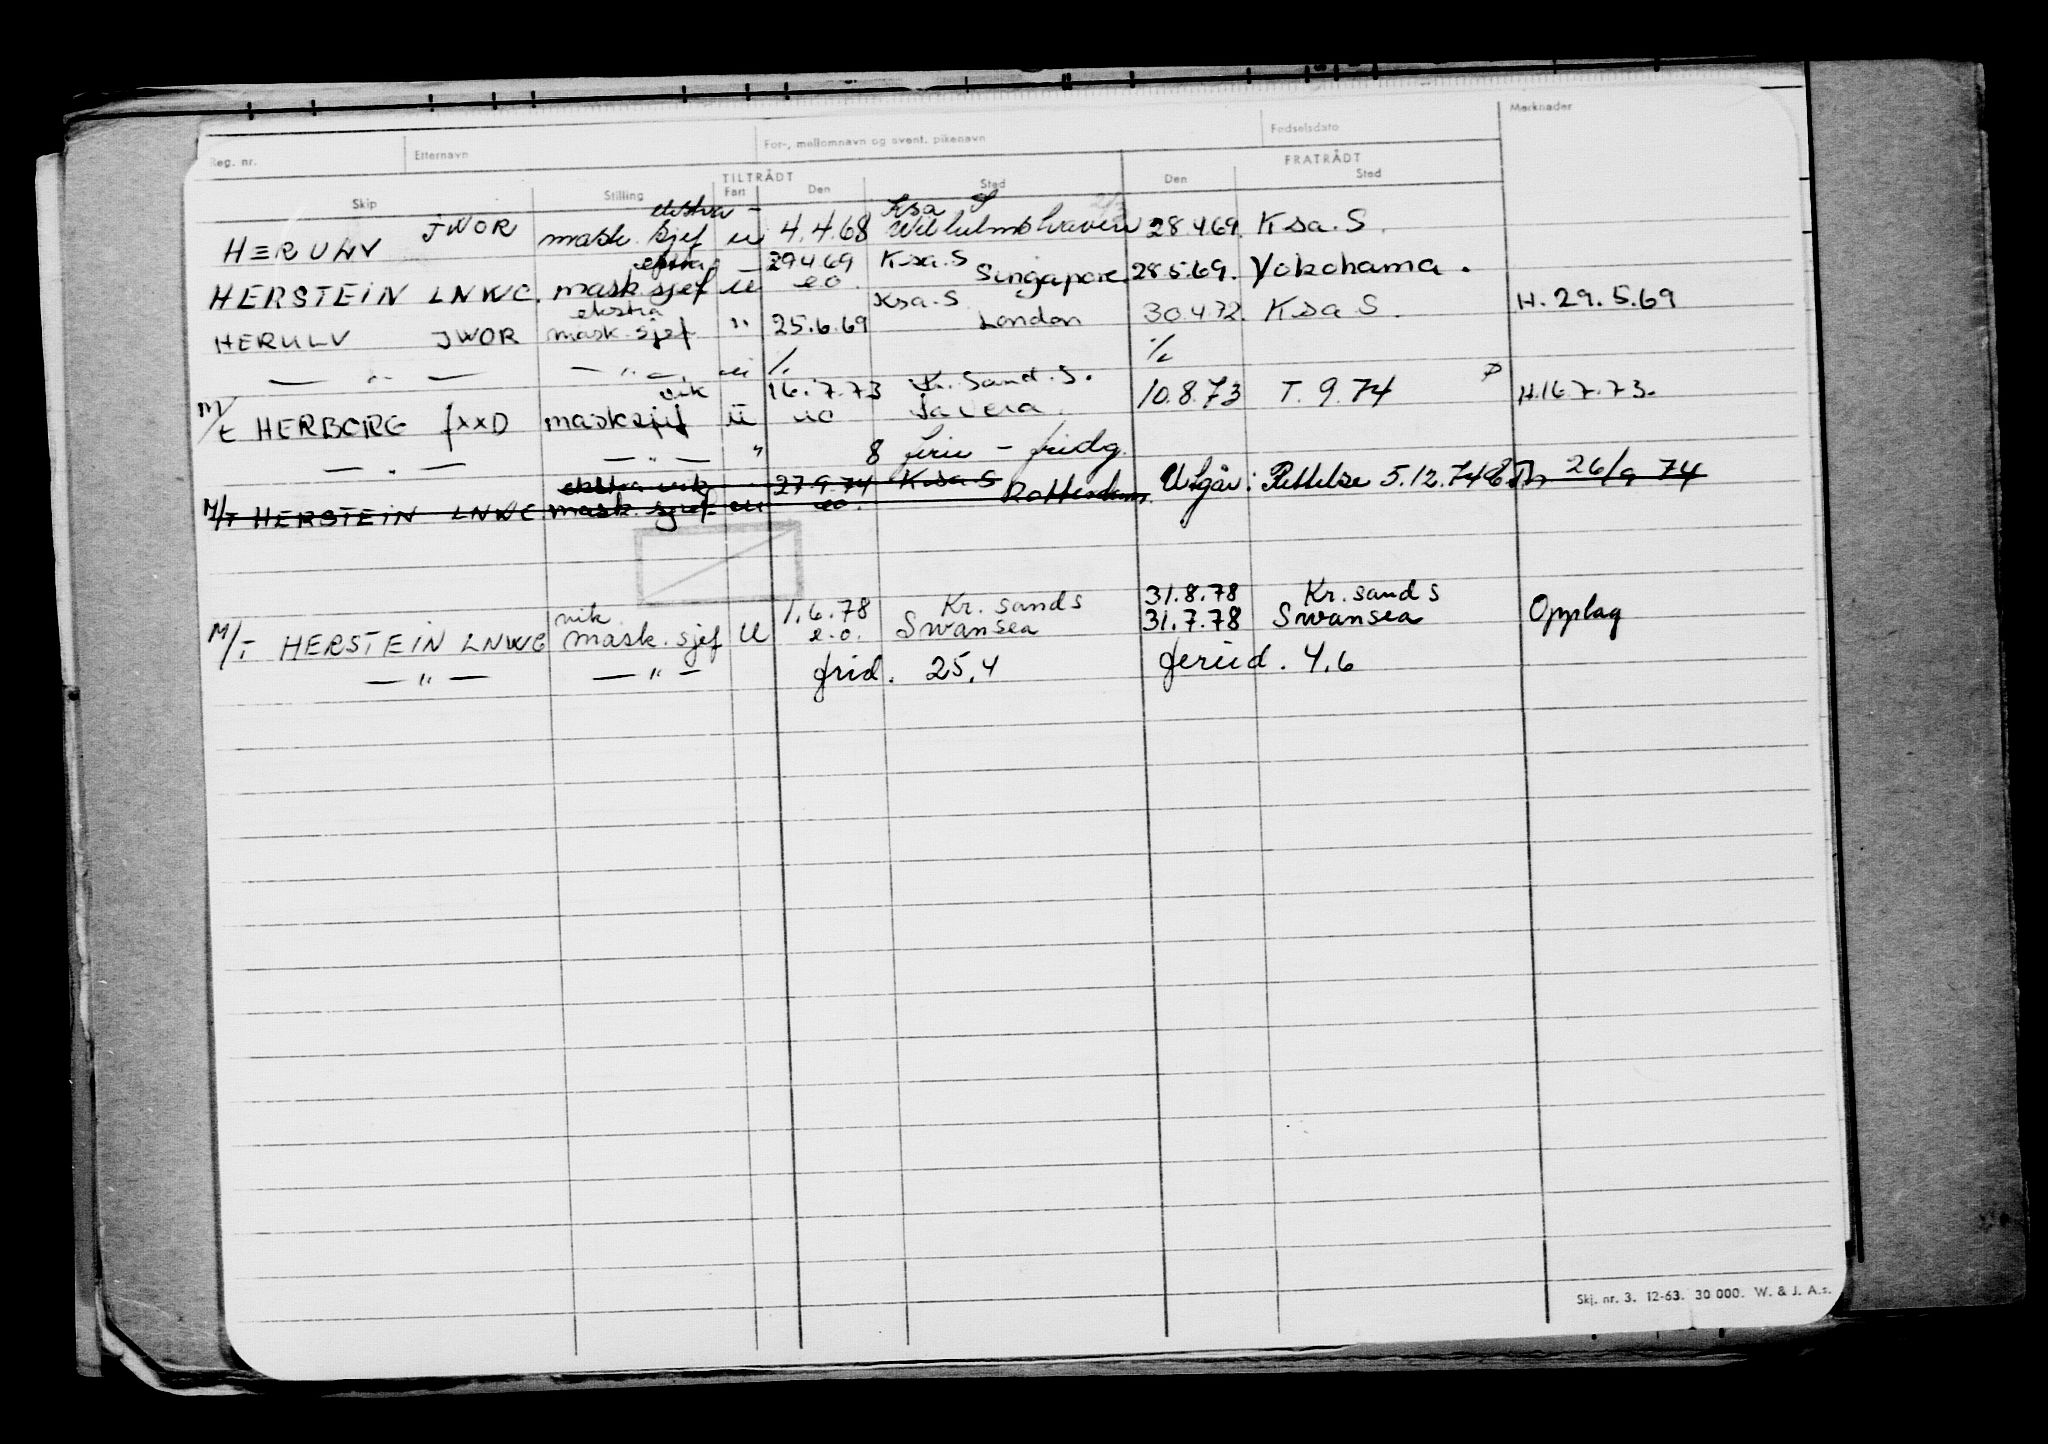 Reg. nr. Etternavn For-, mellomnavn og event. pikenavn Fødselsdato Merknader
TILTRÅDT FRATRÅDT
Skip Stilling Fart Den Sted Den Sted
ekstra - Ksa S
HERULV JWOR mask. sjef u 4.4.68 Wilhelmshaven 28.4.69. Ksa. S.
ekstra 29.4.69 Ksa. S
HERSTEIN LNWC. mask. sjef u eo. Singapore 28.5.69. Yokohama.
ekstra Ksa. S
HERULV JWOR mask. sjef " 25.6.69 London 30.4.72. Ksa S. H. 29.5.69
— " — — " — u /. /.
vik 16.7.73 Kr. Sand. S.
M/T HERBORG JXXD mask sjef u eo 10.8.73 T. 9.74 H. 16.7.73.
— " — — " — " 8 ferie - fridg.
ekstra vik 27.9.74 Ksa S
M/T HERSTEIN LNWC mask. sjef u eo. Rotterdam Utgår: Rettelse 5.12.74 26/9 74
vik. 1.6.78 Kr. sand S 31.8.78 Kr. sand S
M/T HERSTEIN LNWC mask. sjef U e.o. Swansea 31.7.78 Swansea Opplag
— " — — " — frid. 25,4 feried. 4,6
Skj. nr. 3. 12-63. 30 000. W. & J. A.s.